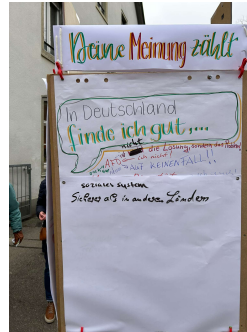 Deine Meinung zählt
In Deutschland
finde ich gut,...
nicht
die Lösung, sondern das
ich nicht!
AUF KEINENFALL!!
soziales System
Sicherer als in anderen Ländern